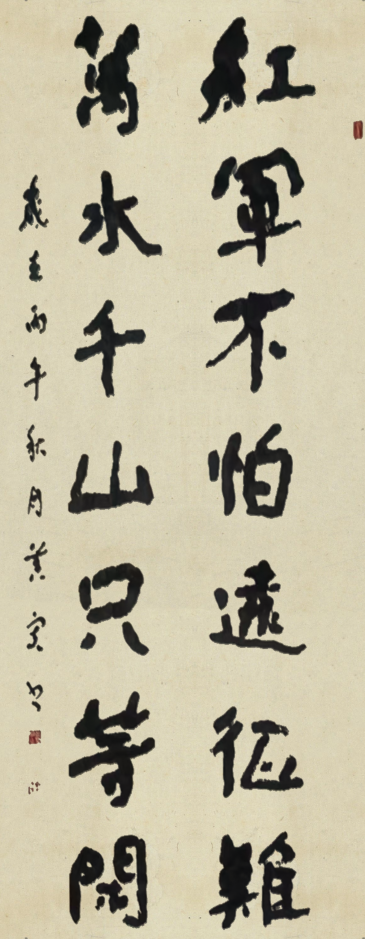 紅軍不怕遠征難
萬水千山只等閑
歲在丙午秋月黄寅书